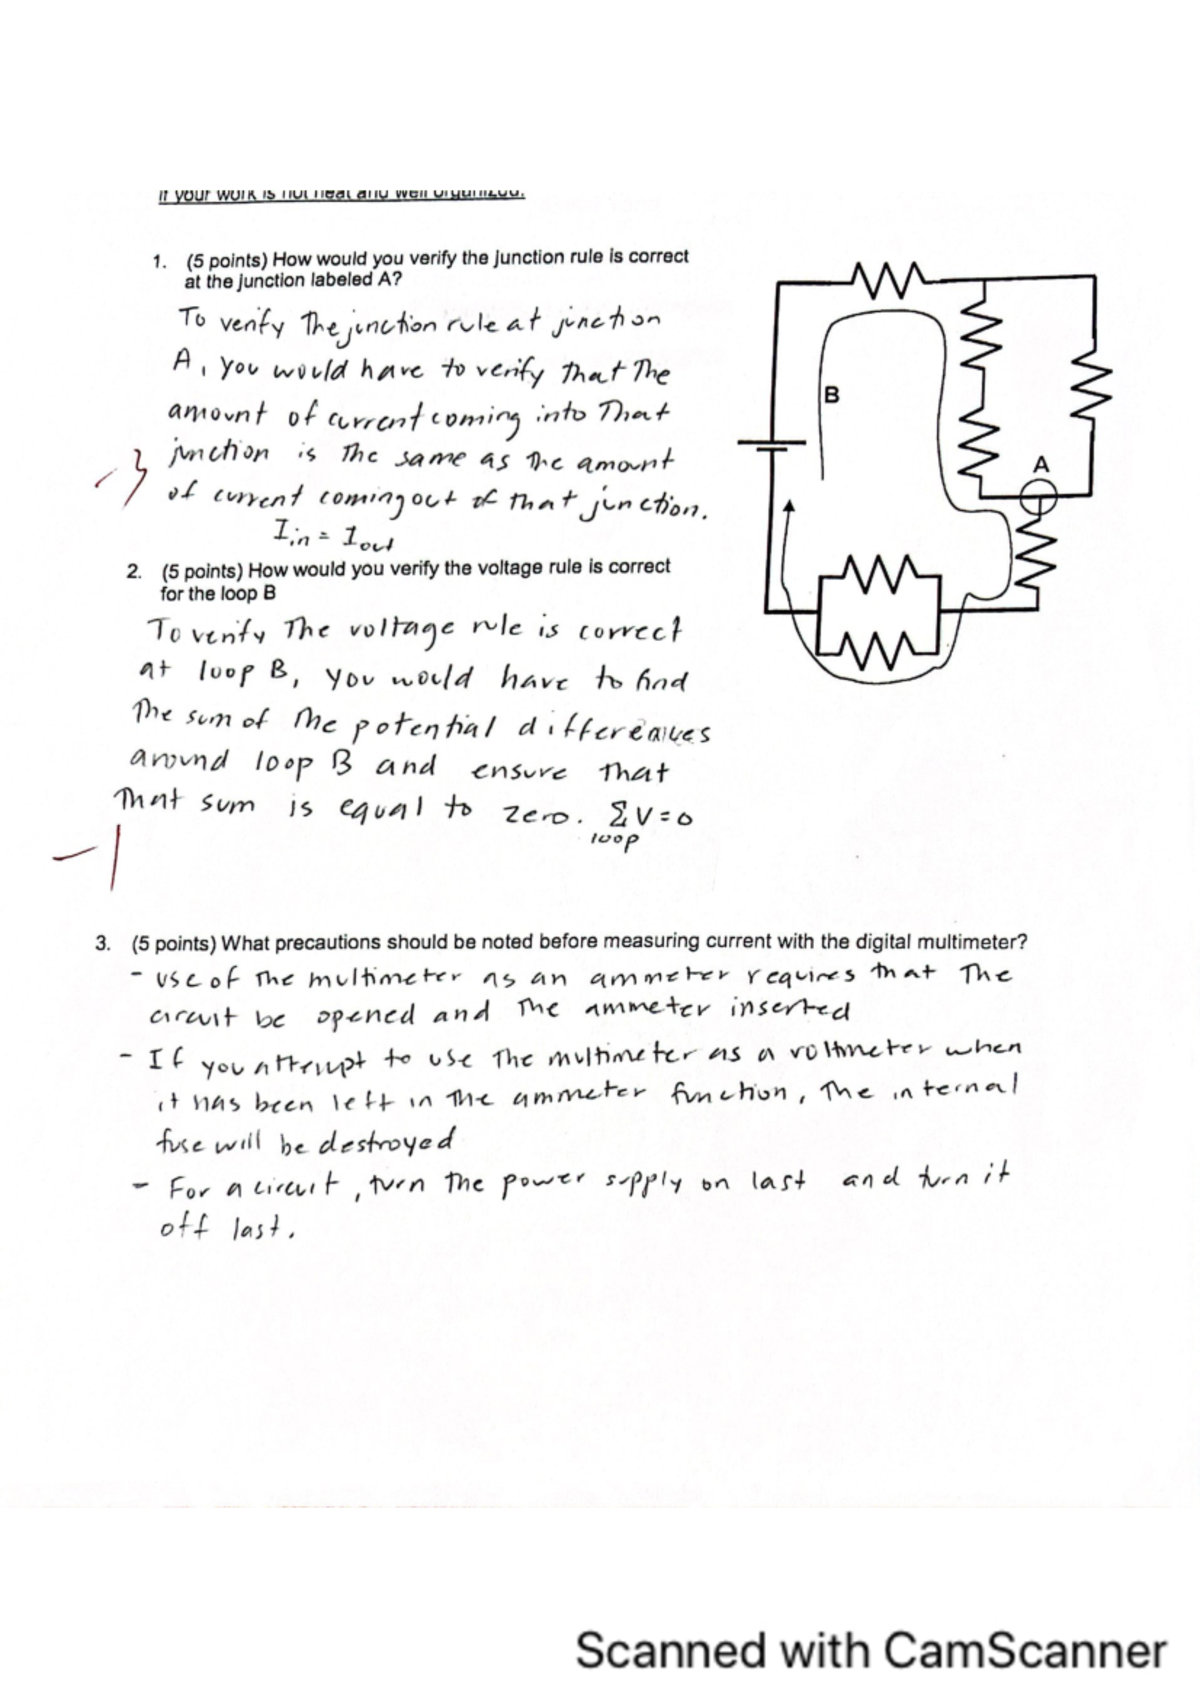 if your work is not neat and well organized.
1. (5 points) How would you verify the junction rule is correct
at the junction labeled A?
To verify The junction rule at junction
A, you would have to verify that The
amount of current coming into That
junction is The same as The amount
of current coming out of that junction.
Iin = Iout
-3
B
A
2. (5 points) How would you verify the voltage rule is correct
for the loop B
To verify The voltage rule is correct
at loop B, you would have to find
The sum of The potential differences
around loop B and ensure That
That sum is equal to zero. ΣV=0
loop
-1
3. (5 points) What precautions should be noted before measuring current with the digital multimeter?
- use of The multimeter as an ammeter requires that The
circuit be opened and The ammeter inserted
- If you attempt to use The multimeter as a voltmeter when
it has been left in The ammeter function, The internal
fuse will be destroyed
- For a circuit, turn The power supply on last and turn it
off last.
Scanned with CamScanner